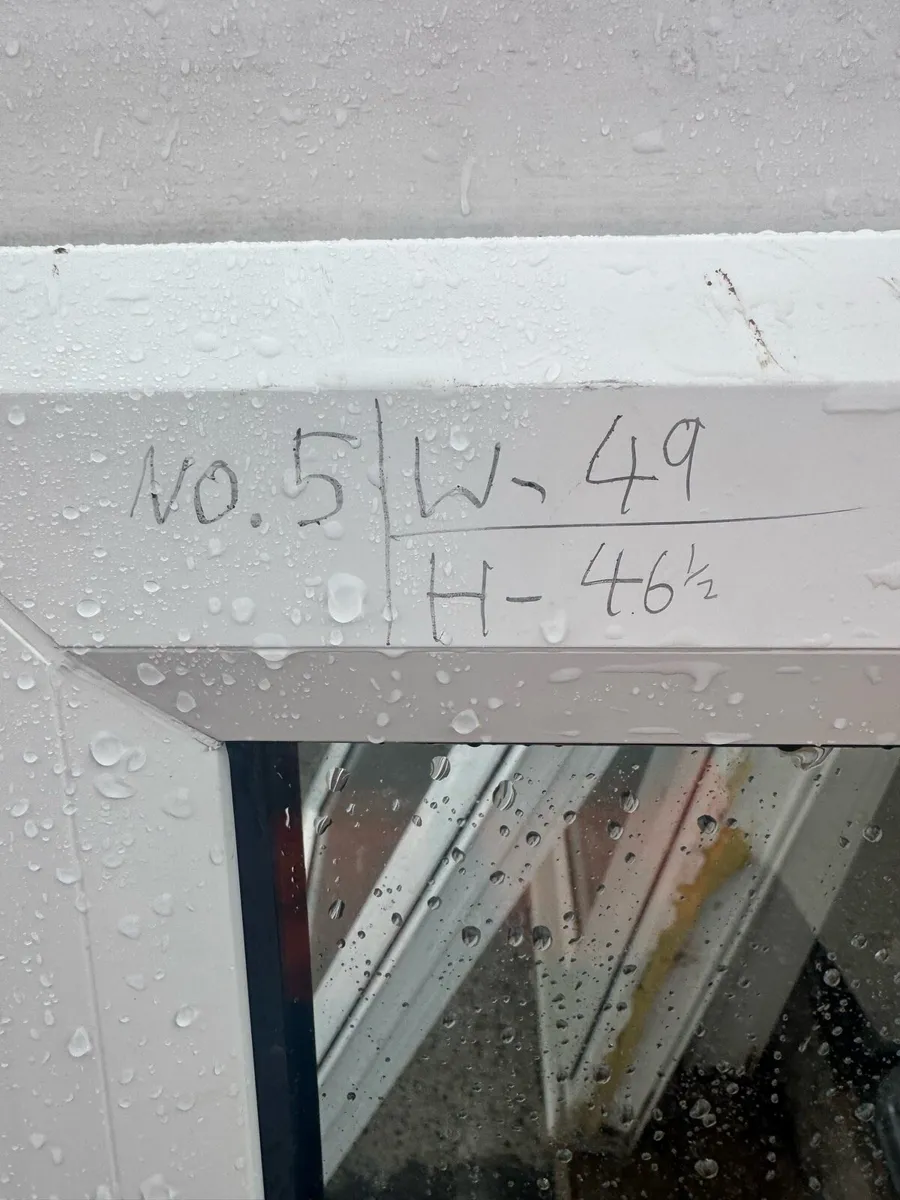 NO. 5 W- 49
H- 46 1/2